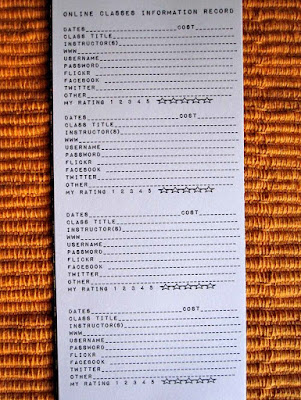 ONLINE CLASSES INFORMATION RECORD
DATES____________________COST________
CLASS TITLE__________________________
INSTRUCTOR(S)________________________
WWW__________________________________
USERNAME_____________________________
PASSWORD_____________________________
FLICKR ______________________________
FACEBOOK ____________________________
TWITTER______________________________
OTHER________________________________
MY RATING 1 2 3 4 5 ☆☆☆☆☆
DATES____________________COST________
CLASS TITLE__________________________
INSTRUCTOR(S)________________________
WWW__________________________________
USERNAME_____________________________
PASSWORD_____________________________
FLICKR ______________________________
FACEBOOK ____________________________
TWITTER______________________________
OTHER________________________________
MY RATING 1 2 3 4 5 ☆☆☆☆☆
DATES____________________COST________
CLASS TITLE__________________________
INSTRUCTOR(S)________________________
WWW__________________________________
USERNAME_____________________________
PASSWORD_____________________________
FLICKR ______________________________
FACEBOOK ____________________________
TWITTER______________________________
OTHER________________________________
MY RATING 1 2 3 4 5 ☆☆☆☆☆
DATES____________________COST________
CLASS TITLE__________________________
INSTRUCTOR(S)________________________
WWW__________________________________
USERNAME_____________________________
PASSWORD_____________________________
FLICKR ______________________________
FACEBOOK ____________________________
TWITTER______________________________
OTHER________________________________
MY RATING 1 2 3 4 5 ☆☆☆☆☆